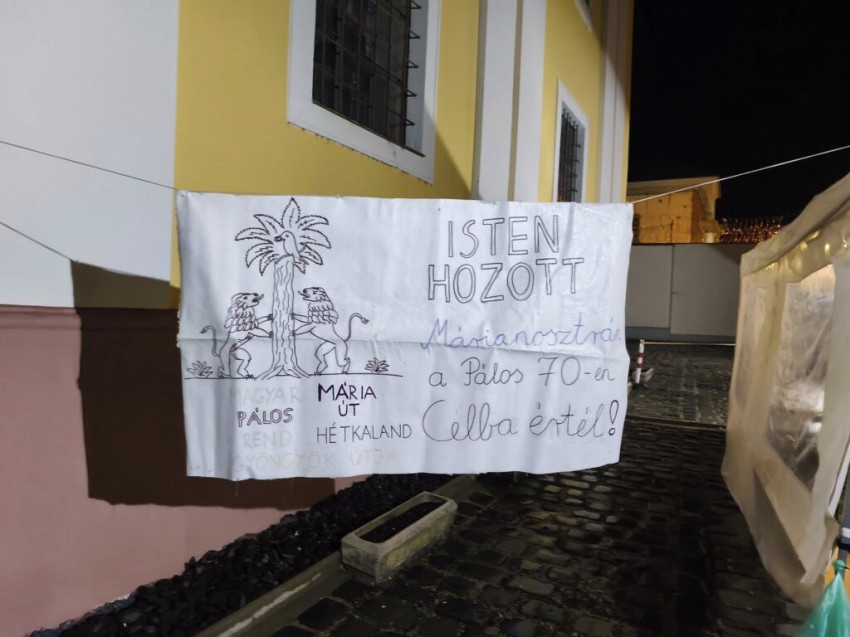 ISTEN
HOZOTT
Márianosztrán
a Pálos 70-en
Célba értél!
MAGYAR
PÁLOS
REND
GYÖNGYÖK ÚTJA
MÁRIA
ÚT
HÉTKALAND